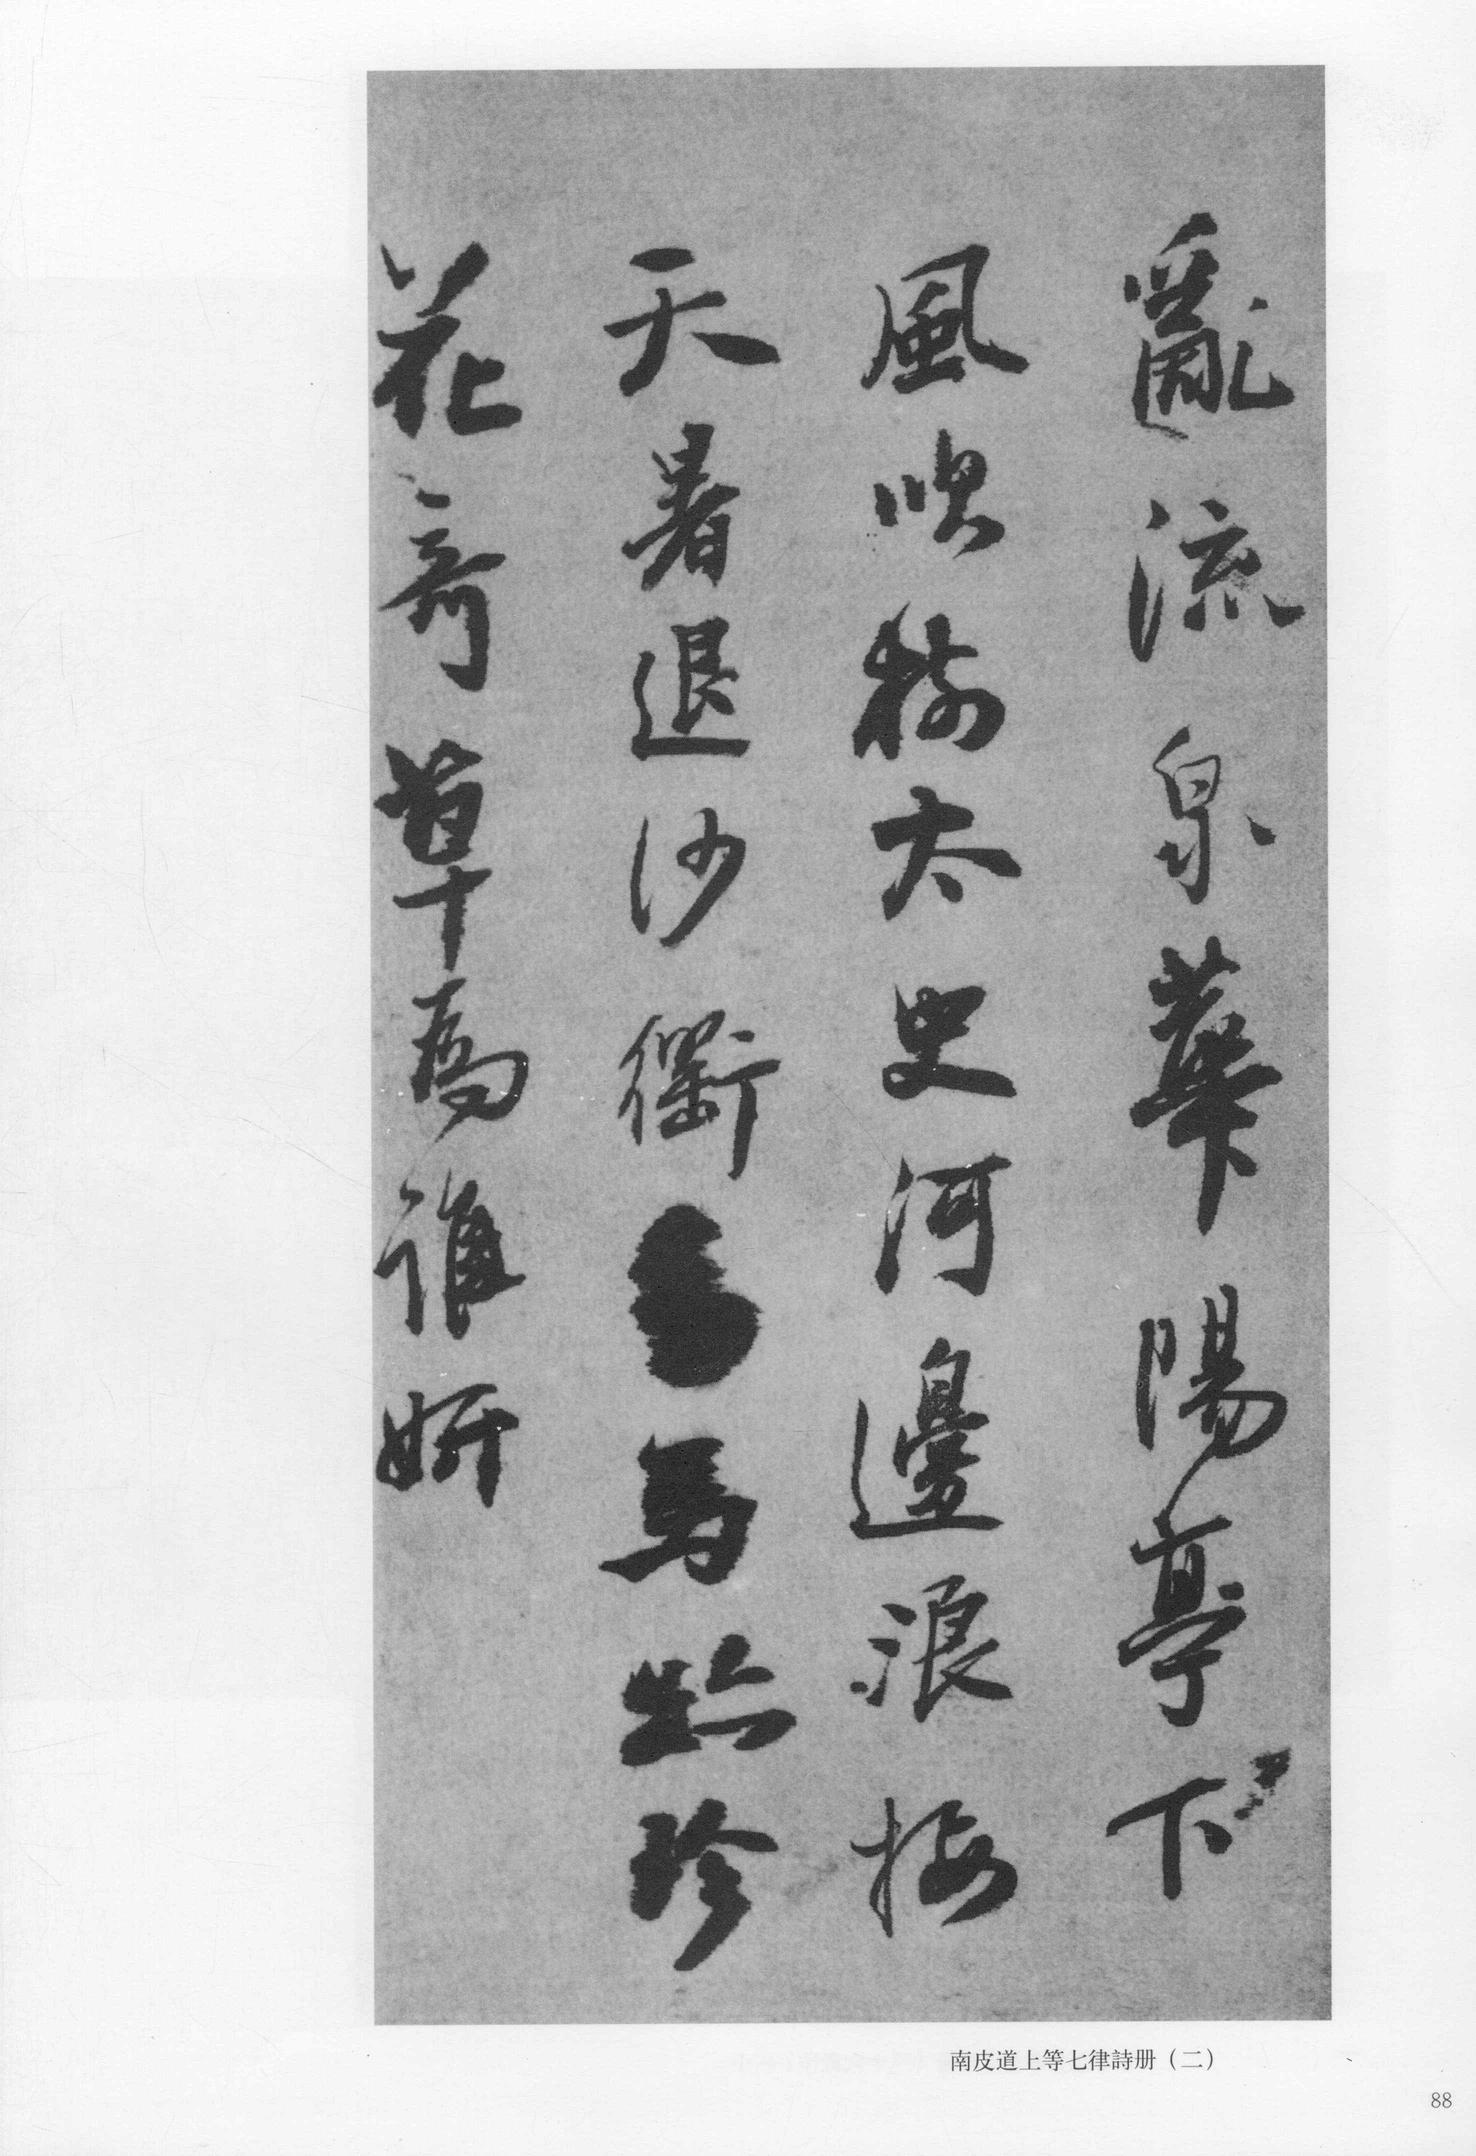 亂流泉華陽亭下
風吹樹太史河邊浪接
天暑退沙衢馬跡珍
花奇草為誰妍
南皮道上等七律詩册（二）
88